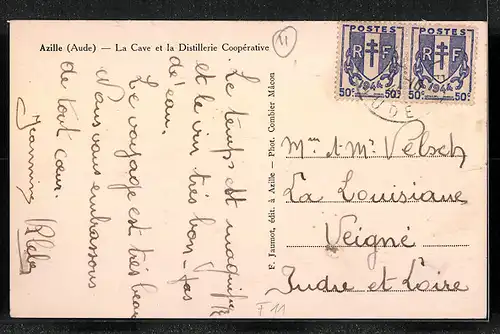 Azille (Aude) — La Cave et la Distillerie Coopérative
11
POSTES
RF
1944
50c 50c
POSTES
RF
1944
50c 50c
AUDE
Le temps est magnifique
et le vin très bon - pas
d'eau.
Le voyage est très beau
Nous vous embrassons
de tout cœur.
Jeannine
F. Jaumot, édit. à Azille — Phot. Combier Mâcon
Mme & Mr Velsch
La Louisiane
Veigné
Indre et Loire
F 11